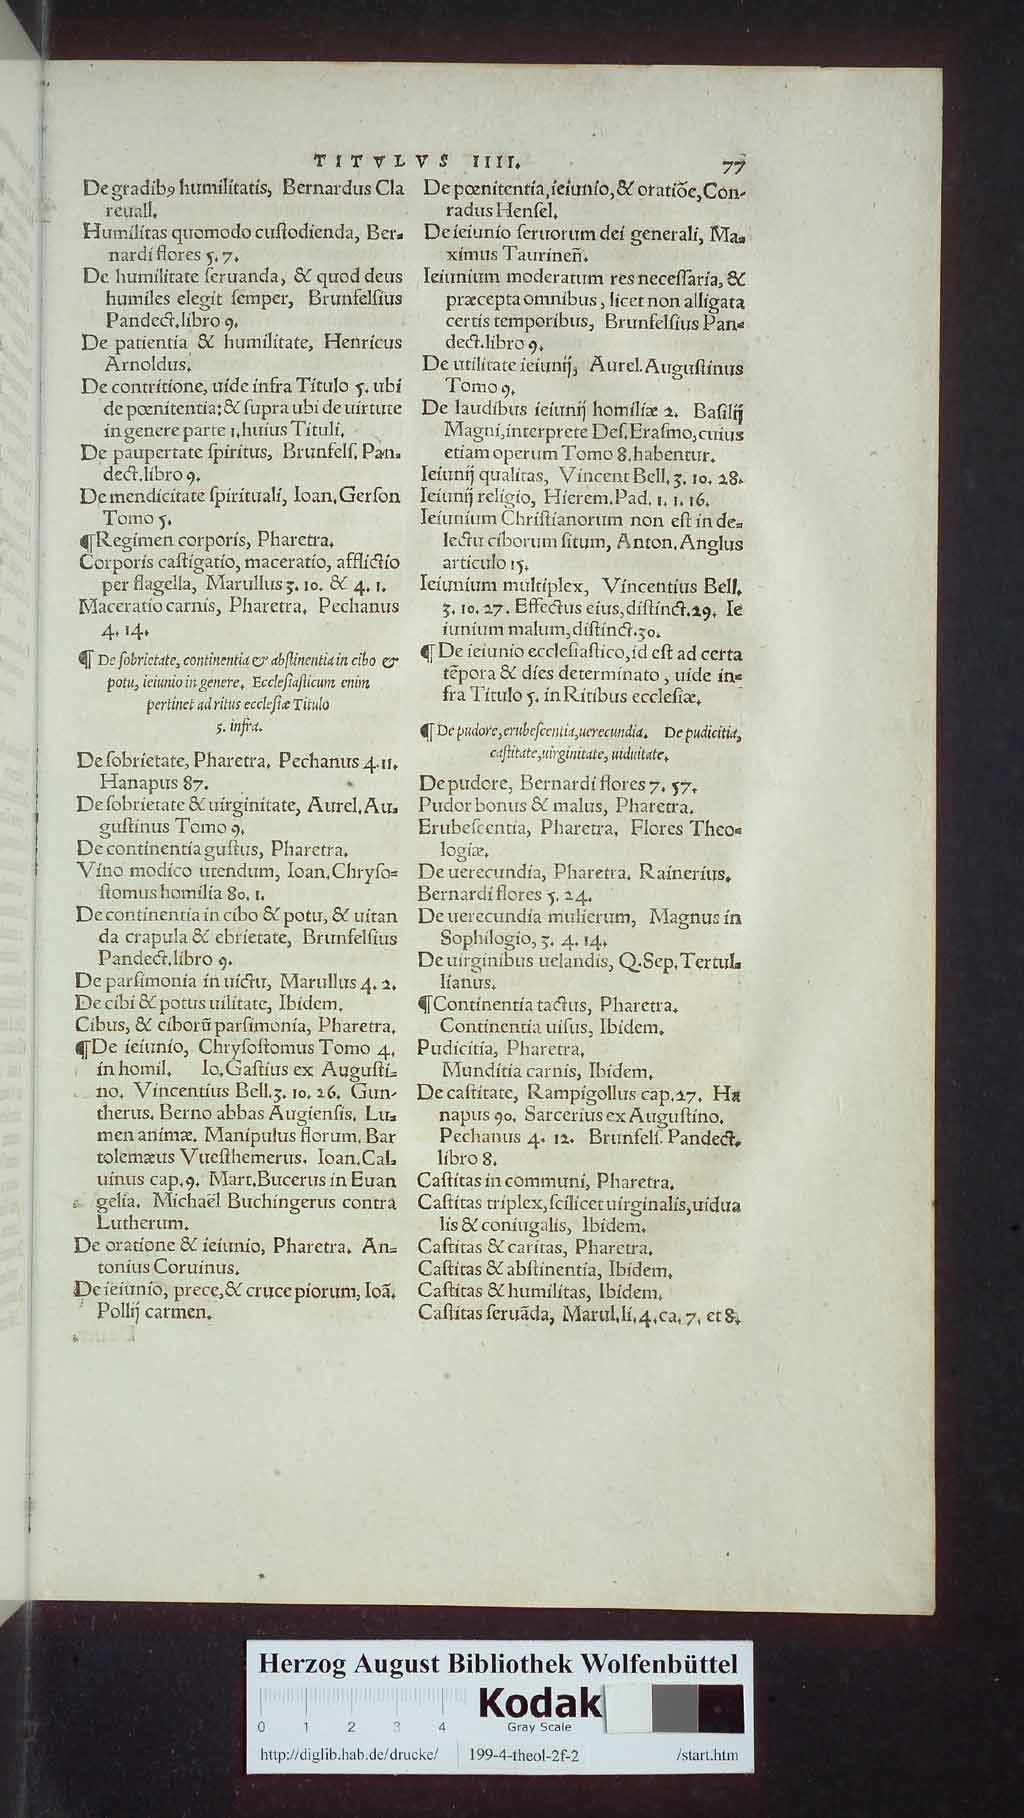 TITVLVS IIII.
77
De gradibꝰ humilitatis, Bernardus Cla
reuall.
Humilitas quomodo custodienda, Ber-
nardi flores 5. 7.
De humilitate seruanda, & quod deus
humiles elegit semper, Brunfelsius
Pandect. libro 9.
De patientia & humilitate, Henricus
Arnoldus.
De contritione, uide infra Titulo 5. ubi
de pœnitentia: & supra ubi de uirtute
in genere parte 1. huius Tituli.
De paupertate spiritus, Brunfels. Pan-
dect. libro 9.
De mendicitate spirituali, Ioan. Gerson
Tomo 5.
¶ Regimen corporis, Pharetra.
Corporis castigatio, maceratio, afflictio
per flagella, Marullus 3. 10. & 4. 1.
Maceratio carnis, Pharetra. Pechanus
4. 14.
¶ De sobrietate, continentia & abstinentia in cibo &
potu, ieiunio in genere. Ecclesiasticum enim
pertinet ad ritus ecclesiæ Titulo
5. infra.
De sobrietate, Pharetra. Pechanus 4. 11.
Hanapus 87.
De sobrietate & uirginitate, Aurel. Au-
gustinus Tomo 9.
De continentia gustus, Pharetra.
Vino modico utendum, Ioan. Chryso-
stomus homilia 80. 1.
De continentia in cibo & potu, & uitan
da crapula & ebrietate, Brunfelsius
Pandect. libro 9.
De parsimonia in uictu, Marullus 4. 2.
De cibi & potus uilitate, Ibidem.
Cibus, & ciborū parsimonia, Pharetra.
¶ De ieiunio, Chrysostomus Tomo 4.
in homil. Io. Gastius ex Augusti-
no. Vincentius Bell. 3. 10. 26. Gun-
therus. Berno abbas Augiensis. Lu-
men animæ. Manipulus florum. Bar
tolemæus Vuesthemerus. Ioan. Cal-
uinus cap. 9. Mart. Bucerus in Euan
gelia. Michaël Buchingerus contra
Lutherum.
De oratione & ieiunio, Pharetra. An-
tonius Coruinus.
De ieiunio, prece, & cruce piorum, Ioā.
Pollij carmen.
De pœnitentia, ieiunio, & oratiōe, Con-
radus Hensel.
De ieiunio seruorum dei generali, Ma-
ximus Taurineñ.
Ieiunium moderatum res necessaria, &
præcepta omnibus, licet non alligata
certis temporibus, Brunfelsius Pan-
dect. libro 9.
De utilitate ieiunij, Aurel. Augustinus
Tomo 9.
De laudibus ieiunij homiliæ 2. Basilij
Magni, interprete Des. Erasmo, cuius
etiam operum Tomo 8. habentur.
Ieiunij qualitas, Vincent Bell. 3. 10. 28.
Ieiunij religio, Hierem. Pad. 1. 1. 16.
Ieiunium Christianorum non est in de-
lectu ciborum situm, Anton. Anglus
articulo 15.
Ieiunium multiplex, Vincentius Bell.
3. 10. 27. Effectus eius, distinct. 29. Ie
iunium malum, distinct. 30.
¶ De ieiunio ecclesiastico, id est ad certa
tēpora & dies determinato, uide in-
fra Titulo 5. in Ritibus ecclesiæ.
¶ De pudore, erubescentia, uerecundia. De pudicitia,
castitate, uirginitate, uiduitate.
De pudore, Bernardi flores 7. 57.
Pudor bonus & malus, Pharetra.
Erubescentia, Pharetra. Flores Theo-
logiæ.
De uerecundia, Pharetra. Rainerius.
Bernardi flores 5. 24.
De uerecundia mulierum, Magnus in
Sophilogio, 3. 4. 14.
De uirginibus uelandis, Q. Sep. Tertul-
lianus.
¶ Continentia tactus, Pharetra.
Continentia uisus, Ibidem.
Pudicitia, Pharetra.
Munditia carnis, Ibidem.
De castitate, Rampigollus cap. 27. Ha
napus 90. Sarcerius ex Augustino.
Pechanus 4. 12. Brunfels. Pandect.
libro 8.
Castitas in communi, Pharetra.
Castitas triplex, scilicet uirginalis, uidua
lis & coniugalis, Ibidem.
Castitas & caritas, Pharetra.
Castitas & abstinentia, Ibidem.
Castitas & humilitas, Ibidem.
Castitas seruāda, Marul. li. 4. ca. 7. et 8.
Herzog August Bibliothek Wolfenbüttel
Kodak
Gray Scale
0 1 2 3 4
http://diglib.hab.de/drucke/ 199-4-theol-2f-2 /start.htm